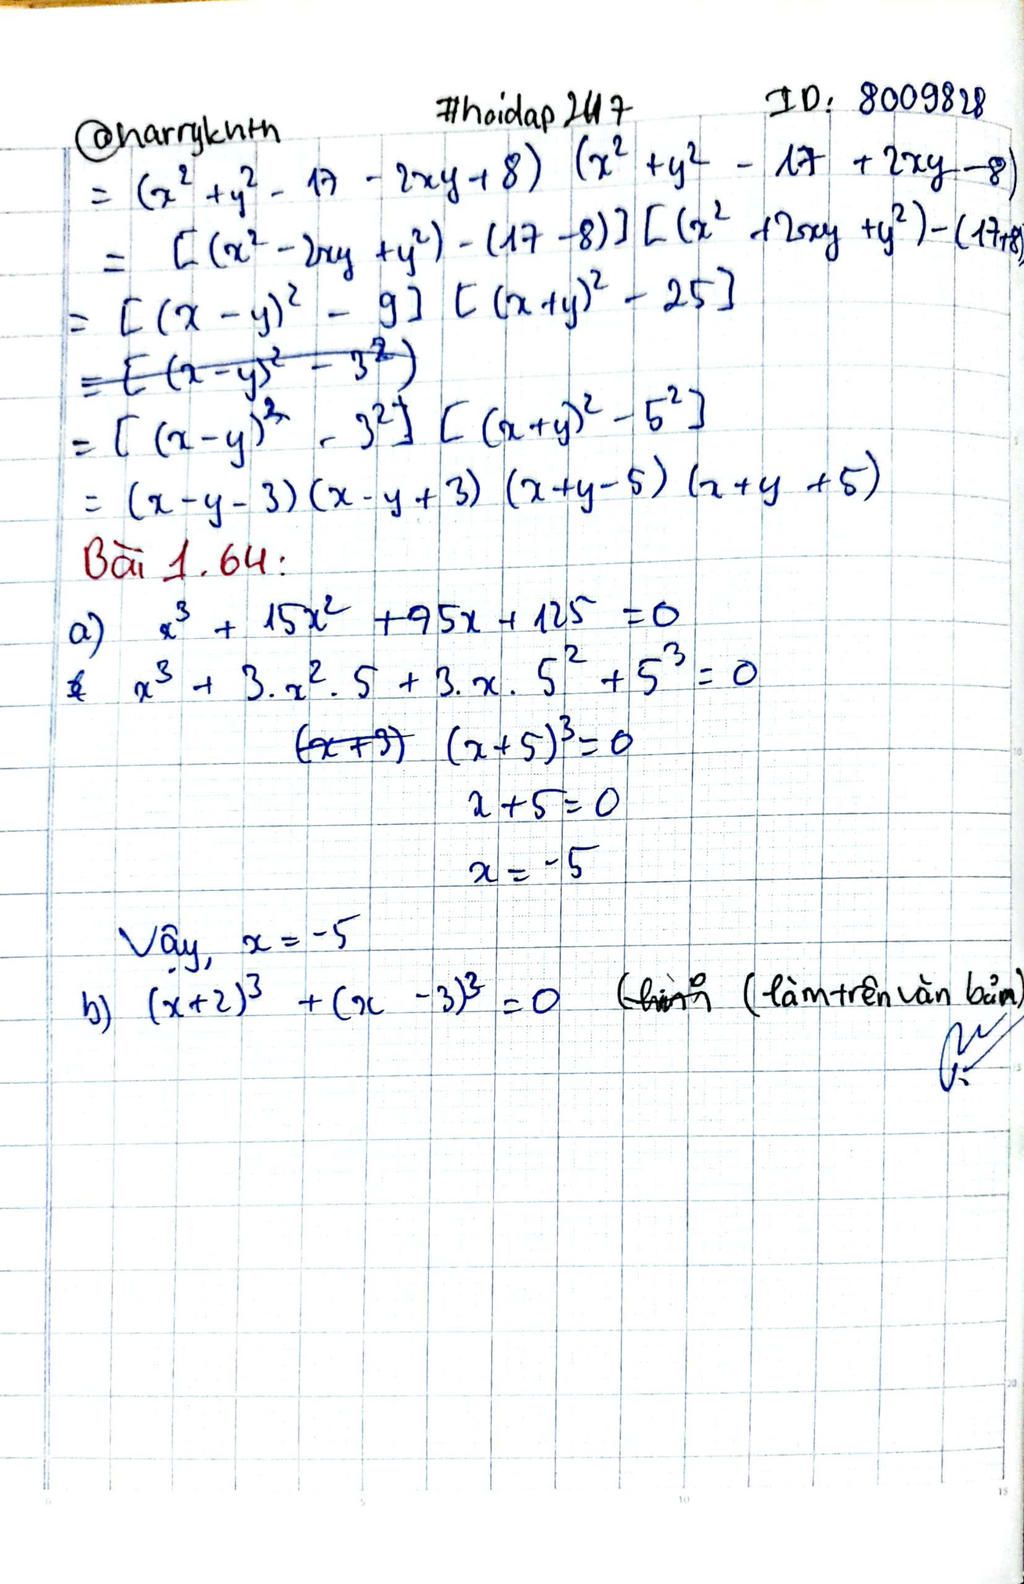 @harryknth #hoidap247 ID: 8009828
= (x² + y² - 17 - 2xy + 8) (x² + y² - 17 + 2xy - 8)
= [(x² - 2xy + y²) - (17 - 8)] [(x² + 2xy + y²) - (17+8)
= [(x - y)² - 9] [(x + y)² - 25]
= [(x - y)² - 3²)
= [(x - y)² - 3²] [(x + y)² - 5²]
= (x - y - 3) (x - y + 3) (x + y - 5) (x + y + 5)
Bài 1.64:
a) x³ + 15x² + 95x + 125 = 0
x³ + 3.x².5 + 3.x.5² + 5³ = 0
(x + 3) (x + 5)³ = 0
x + 5 = 0
x = -5
Vậy, x = -5
b) (x + 2)³ + (x - 3)³ = 0 (làm trên văn bản)